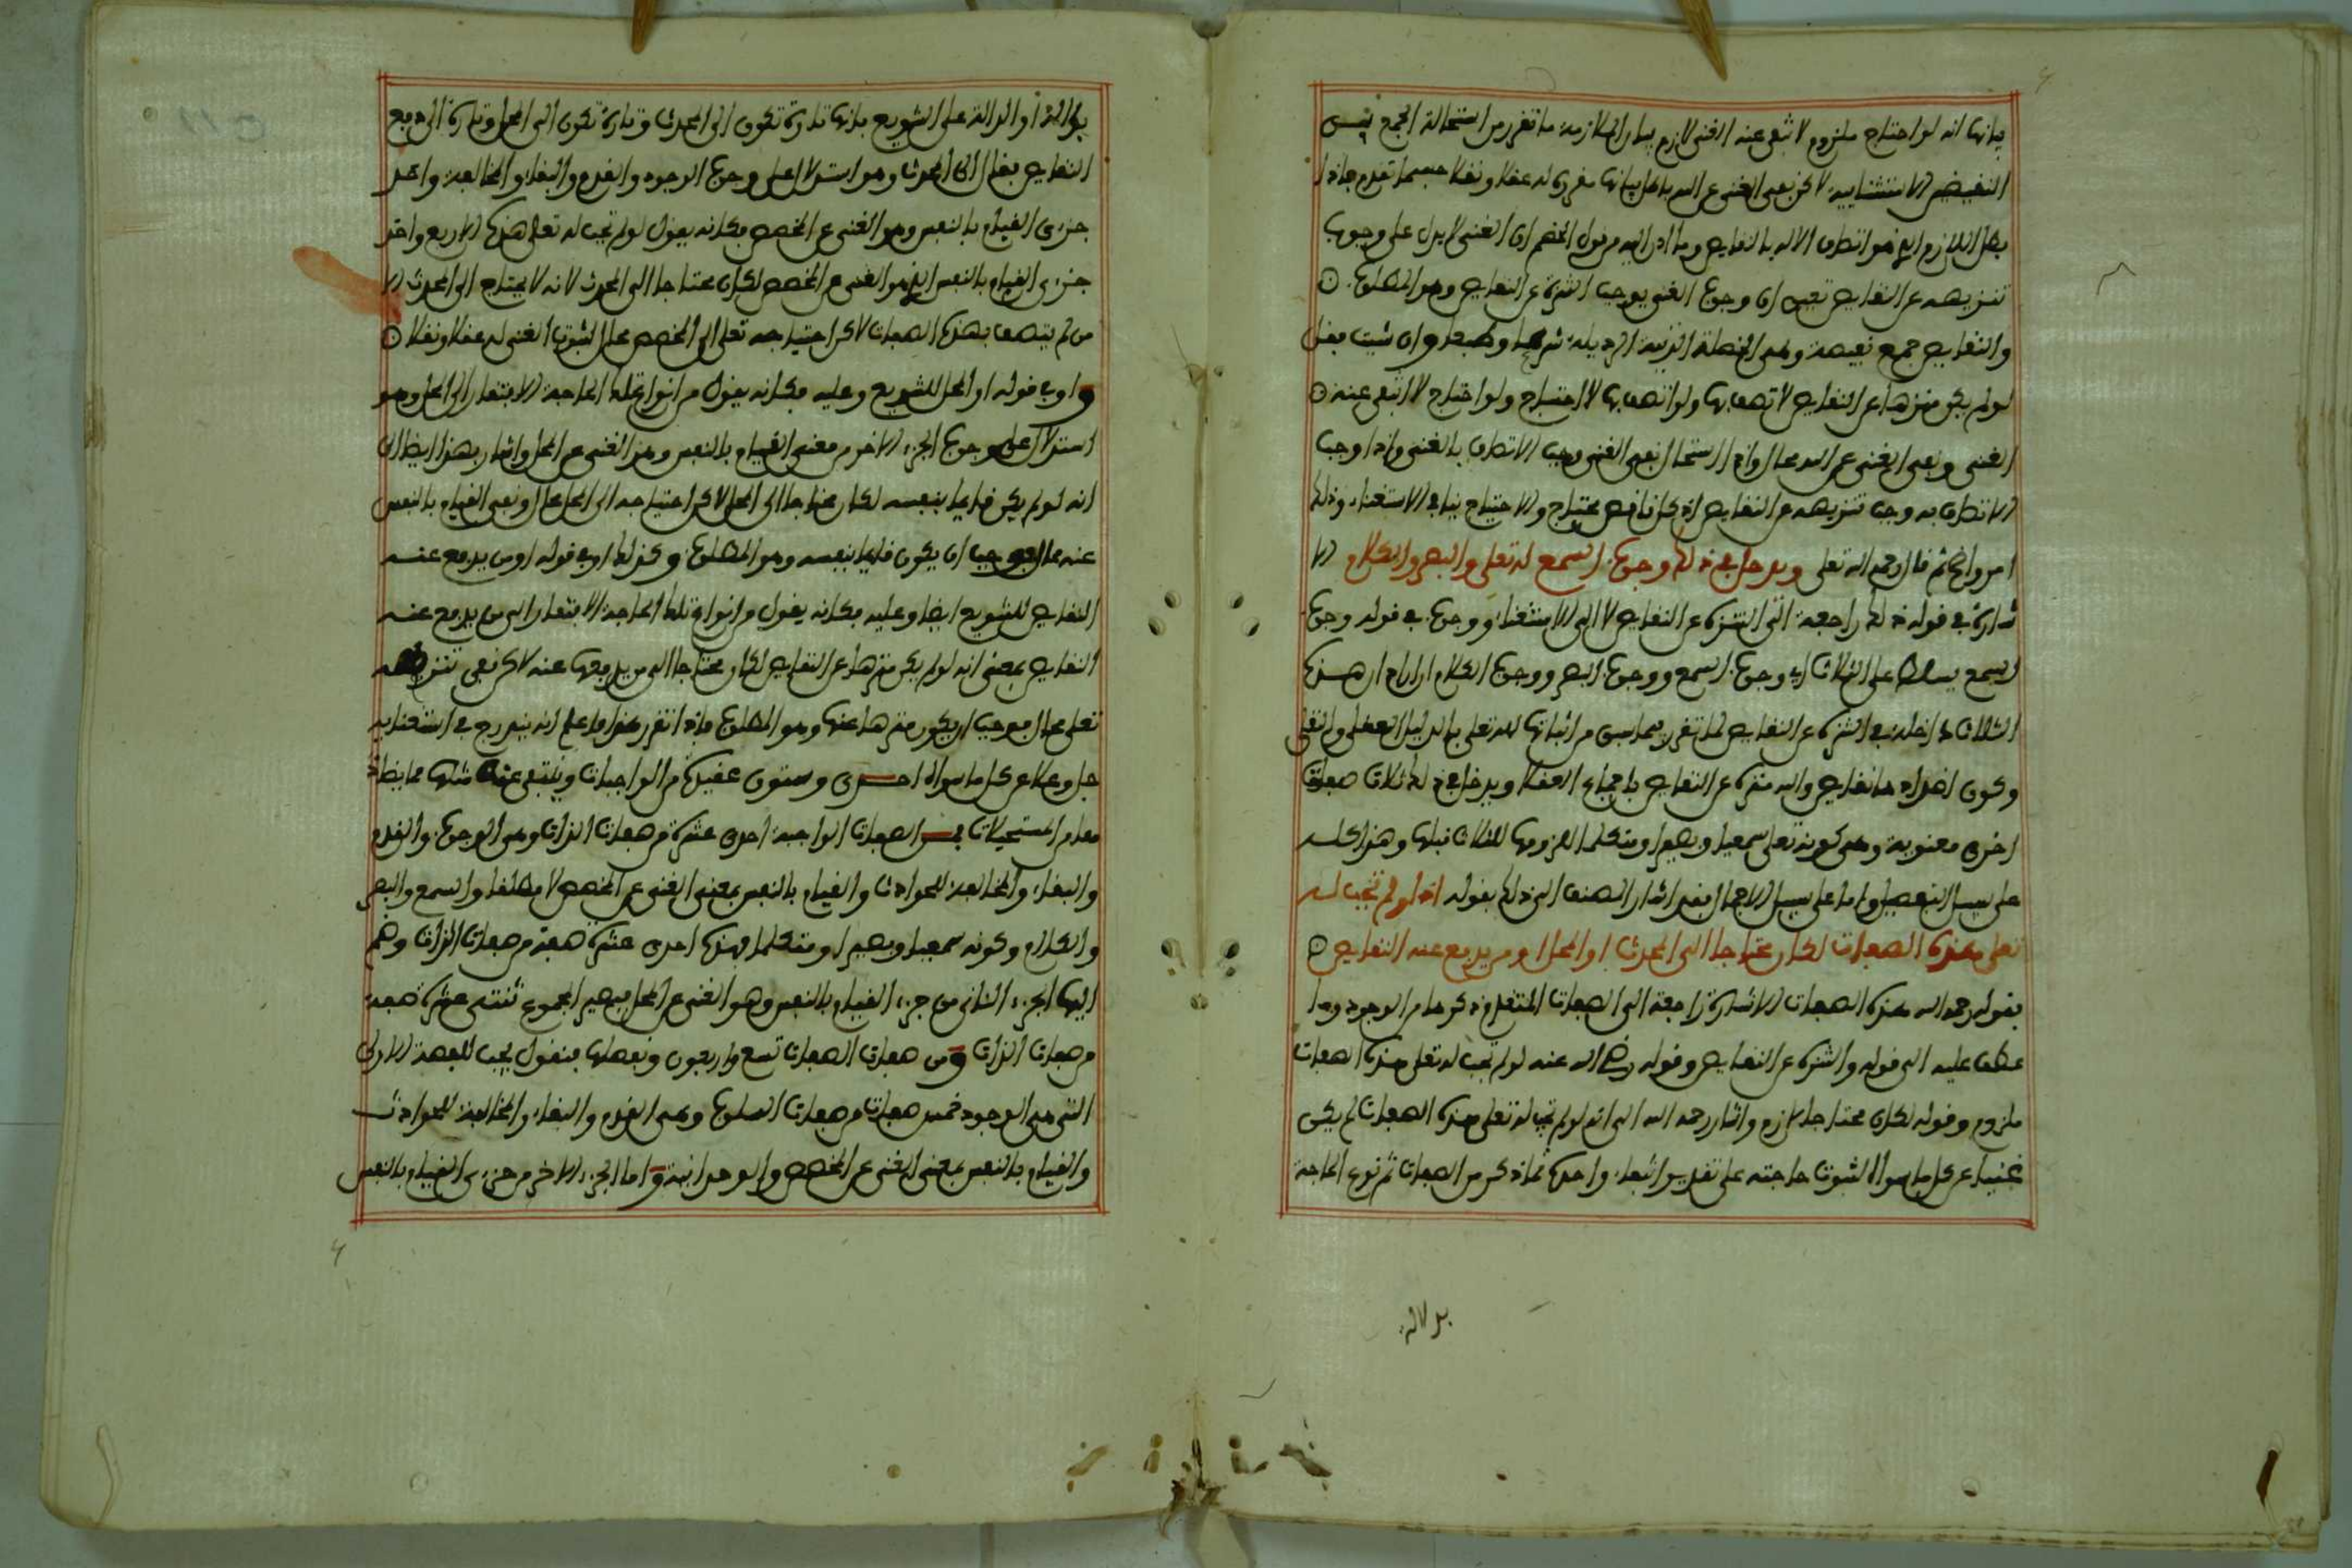 بيانها انه لو احتاج ملزوم لانتفى عنه الغنى لازم بيان الملازمة ما تقرر من استحالة الجمع بين
النقيضين الاستثنايية لاكن نفي الغنى عن الله باطل بيانها مقررة له عقلا ونقلا حسبما تقدم فاذا
بطل اللازم الذي هو اتصاف الاله بالنقايص وما ادى اليه من قول الخصم ان الغنى لا يدل على وجوب
تنزيهه عن النقايص تعين ان وجوب الغنى يوجب التنزه عن النقايص وهو المطلوب
والنقايص جمع نقيصة وهي الخصلة الدنية الرذيلة شرعا وطبعا وان شيت فقل
لو لم يكن منزها عن النقايص لاتصف بها ولو اتصف بها لاحتاج ولو احتاج لانتفى عنه
الغنى ونفي الغنى عن الله محال واذا استحال نفي الغنى وجب الاتصاف بالغنى واذا وجب
الاتصاف به وجب تنزيهه عن النقايص اذ كل ناقص محتاج والاحتياج ينافي الاستغناء وذلك
امر واضح ثم قال رحمه الله تعلى ويدخل في ذلك وجوب السمع له تعلى والبصر والكلام الا
شارة في قوله ذلك راجعة الى التنزه عن النقايص لا الى الاستغناء ووجوب في قوله وجوب
السمع يسلط على الثلاث اي وجوب السمع ووجوب البصر ووجوب الكلام اراد ان هذه
الثلاث داخلة في التنزه عن النقايص لما تقرر فيما سبق من اثباتها لله تعلى بالدليل العقلي والنقلي
وكون اضدادها نقايص والله منزه عن النقايص باجماع العقلا ويدخل في ذلك ثلاث صفات
اخرى معنوية وهي كونه تعلى سميعا وبصيرا ومتكلما للزومها للثلاث قبلها وهذا كله
على سبيل التفصيل واما على سبيل الاجمال فقد اشار المصنف الى ذلك بقوله اذ لو لم تجب له
تعلى هذه الصفات لكان محتاجا الى المحدث او المحل او من يدفع عنه النقايص
فقوله رحمه الله هذه الصفات الاشارة راجعة الى الصفات المتقدم ذكرها من الوجود وما
عطف عليه الى قوله والتنزه عن النقايص وقوله رضي الله عنه لو لم تجب له تعلى هذه الصفات
ملزوم وقوله لكان محتاجا لازم واشار رحمه الله الى انه لو لم تجب له تعلى هذه الصفات لم يكن
غنيا عن كل ما سواه لثبوت حاجته على تقدير انتفاء واحدة مما ذكر من الصفات ثم نوع الحاجة
بدلالة
بدلالة او الدالة على التنويع بانها تارة تكون الى المحدث وتارة تكون الى المحل وتارة الى دفع
النقايص فقال الى المحدث وهو استدلال على وجوب الوجود والقدم والبقاء والمخالفة واحد
جزءي القيام بالنفس وهو الغنى عن المخصص فكانه يقول لو لم تجب له تعلى هذه الاربع واحد
جزءي القيام بالنفس الذي هو الغنى عن المخصص لكان محتاجا الى المحدث لانه لا يحتاج الى المحدث الا
من لم يتصف بهذه الصفات لاكن احتياجه تعلى الى المخصص محال لثبوت الغنى له عقلا ونقلا
واو في قوله او المحل للتنويع وعليه فكانه يقول من انواع تلك الحاجة الافتقار الى المحل وهو
استدلال على وجوب الجزء الاخر من معنى القيام بالنفس وهو الغنى عن المحل واشار بهذا ايضا الى
انه لو لم يكن قايما بنفسه لكان محتاجا الى المحل لاكن احتياجه الى المحل محال ونفي القيام بالنفس
عنه محال فوجب ان يكون قايما بنفسه وهو المطلوب وكذلك او في قوله او من يدفع عنه
النقايص للتنويع ايضا وعليه فكانه يقول من انواع تلك الحاجة الافتقار الى من يدفع عنه
النقايص بمعنى انه لو لم يكن منزها عن النقايص لكان محتاجا الى من يدفعها عنه لاكن نفي تنزيهه
تعلى محال فوجب ان يكون منزها عنها وهو المطلوب فاذا تقرر هذا فاعلم انه يندرج في استغنايه
جل وعلا عن كل ما سواه احدى وستون عقيدة من الواجبات وينتفي عنه مثلها مما يضاد
من المستحيلات فمن الصفات الواجبة احدى عشرة من صفات الذات وهي الوجود والقدم
والبقاء والمخالفة للحوادث والقيام بالنفس بمعنى الغنى عن المخصص لا مطلقا والسمع والبصر
والكلام وكونه سميعا وبصيرا ومتكلما فهذه احدى عشرة صفة من صفات الذات وضم
اليها الجزء الثاني من جزء القيام بالنفس وهو الغنى عن المحل فيصير المجموع ثنتي عشرة صفة
من صفات الذات ومن صفات الصفات تسع واربعون وتفصيلها فنقول يجب للصفة الاولى
التي هي الوجود خمس صفات من صفات السلوب وهي القدم والبقاء والمخالفة للحوادث
والقيام بالنفس بمعنى الغنى عن المخصص والوحدانية واما الجزء الاخر من جزءي القيام بالنفس